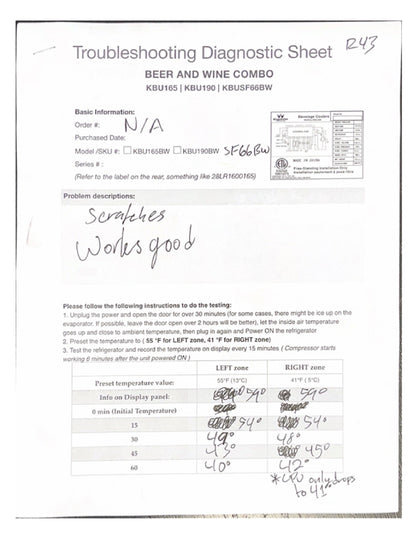 R43
Troubleshooting Diagnostic Sheet
BEER AND WINE COMBO
KBU165 | KBU190 | KBUSF66BW
Basic Information:
Order #: N/A
Purchased Date:
Model /SKU #: KBU165BW KBU190BW SF66BW
Series # :
(Refer to the label on the rear, something like 28LR1600165)
Beverage Coolers
MADE IN CHINA
Free-Standing Installation Only
Problem descriptions:
Scratches
Works good
Please follow the following instructions to do the testing:
1. Unplug the power and open the door for over 30 minutes (for some cases, there might be ice up on the
evaporator. If possible, leave the door open over 2 hours will be better), let the inside air temperature
goes up and close to ambient temperature, then plug in again and Power ON the refrigerator
2. Preset the temperature to ( 55 °F for LEFT zone, 41 °F for RIGHT zone)
3. Test the refrigerator and record the temperature on display every 15 minutes ( Compressor starts
working 6 minutes after the unit powered ON )
LEFT zone RIGHT zone
Preset temperature value: 55°F (13°C) 41°F ( 5°C)
Info on Display panel: 59° 59°
0 min (Initial Temperature)
15 54° 54°
30 49° 48°
45 43° 45°
60 40° 42°
* CPU only drops
to 41°